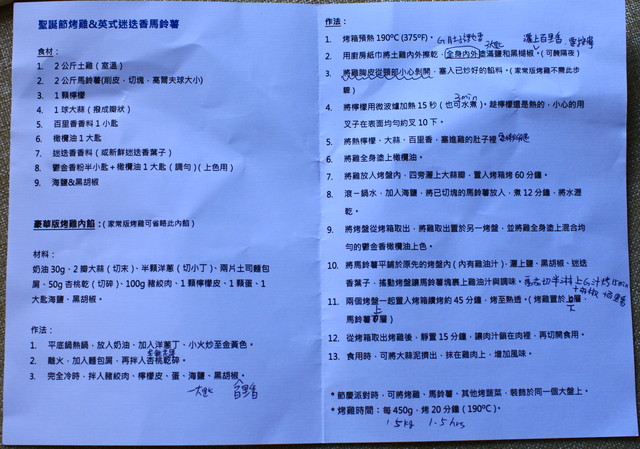 聖誕節烤雞&英式迷迭香馬鈴薯
食材：
1. 2公斤土雞(室溫)
2. 2公斤馬鈴薯(削皮，切塊，高爾夫球大小)
3. 1顆檸檬
4. 1球大蒜(撥成瓣狀)
5. 百里香香料1小匙
6. 橄欖油1大匙
7. 迷迭香香料(或新鮮迷迭香葉子)
8. 鬱金香粉半小匙+橄欖油1大匙(調勻)(上色用)
9. 海鹽&黑胡椒
豪華版烤雞內餡：(家常版烤雞可省略此內餡)
材料：
奶油30g、2瓣大蒜(切末)、半顆洋蔥(切小丁)、兩片土司麵包
屑、50g杏桃乾(切碎)、100g豬絞肉、1顆檸檬皮、1顆蛋、1
大匙海鹽、黑胡椒。
作法：
1. 平底鍋熱鍋，放入奶油、加入洋蔥丁、小火炒至金黃色。
2. 離火，加入麵包屑，再拌入杏桃乾碎。
3. 完全冷時，拌入豬絞肉、檸檬皮、蛋、海鹽、黑胡椒。
一大匙 百里香
作法：
1. 烤箱預熱190°C (375°F)。
2. 用廚房紙巾將土雞內外擦乾，全身內外塗滿鹽和黑楜椒。(可醃隔夜)
灑上百里香
3. 將雞胸皮從頸部小心剝開，塞入已炒好的餡料。(家常版烤雞不需此步
驟)
3min
4. 將檸檬用微波爐加熱15秒(也可水煮)。趁檸檬還是熱的，小心的用
叉子在表面均勻約叉10下。
5. 將熱檸檬、大蒜、百里香，塞進雞的肚子裡
6. 將雞全身塗上橄欖油。
7. 將雞放入烤盤內，四旁灑上大蒜瓣，置入烤箱烤60分鐘。
8. 滾一鍋水，加入海鹽，將已切塊的馬鈴薯放入，煮12分鐘，將水瀝
乾。
9. 將烤盤從烤箱取出，將雞取出置於另一烤盤，並將雞全身塗上混合均
勻的鬱金香橄欖油上色。
10. 將馬鈴薯平鋪於原先的烤盤內(內有雞油汁)，灑上鹽、黑胡椒、迷迭
香葉子，搖動烤盤讓馬鈴薯塊裹上雞油汁與調味。
11. 兩個烤盤一起置入烤箱續烤約45分鐘，烤至熟透。(烤雞置於上層，
馬鈴薯下層)
上 下
12. 從烤箱取出烤雞後，靜置15分鐘，讓肉汁鎖在肉裡，再切開食用。
13. 食用時，可將大蒜泥擠出，抹在雞肉上，增加風味。
*節慶派對時，可將烤雞、馬鈴薯、其他烤蔬菜，裝飾於同一個大盤上。
*烤雞時間：每450g，烤20分鐘(190°C)。
1.5kg 1.5hrs